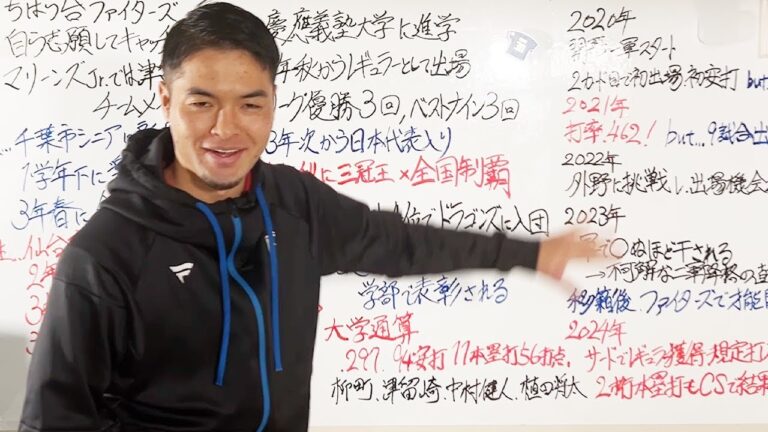 ちはら台ファイターズ
自ら志願してキャッチ
マリーンズJr.では津
チームメ
...千葉市シニアに
1学年下に
3年春に
仙台
2年
3
慶應義塾大学に進学
年秋からレギュラーとして出場
ーグ優勝3回,ベストナイン3回
3年次から日本代表入り
に三冠王×全国制覇
位でドラゴンズに入団
学部で表彰される
大学通算
.297. 94安打 11本塁打56打点.
柳町.津留崎.中村健人.植田将太
2020年
軍スタート
2カード目で初出場.初安打 but
2021年
打率.462! but...9試合出
2022年
外野に挑戦し.出場機会
2023年
で〇ぬほど干される
→不可解な二軍降格の
移籍後.ファイターズで才能
2024年
サードでレギュラー獲得.規定打
2桁本塁打もCSで結果